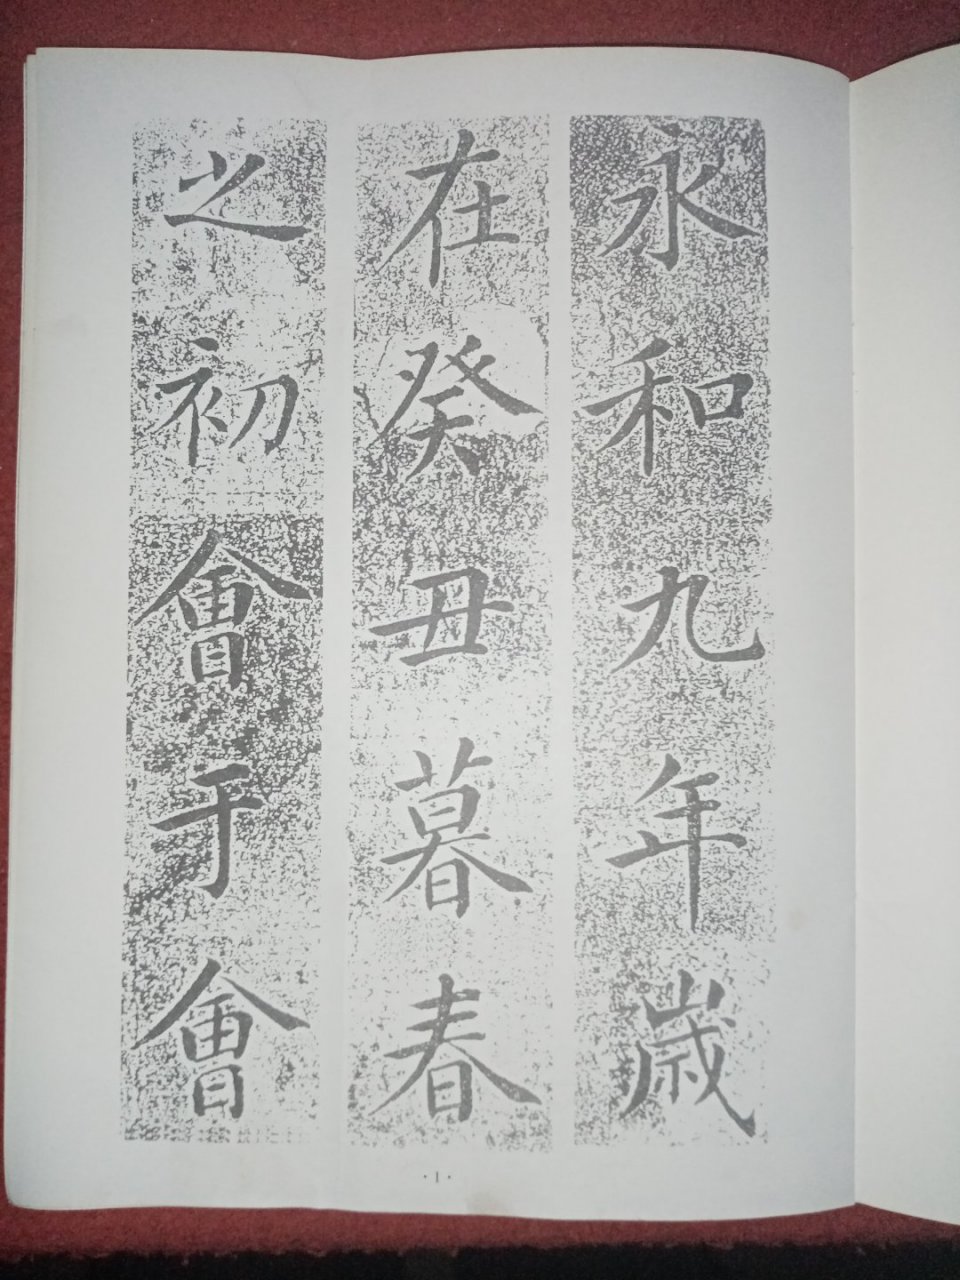 永和九年歳
在癸丑暮春
之初會于會
·1·